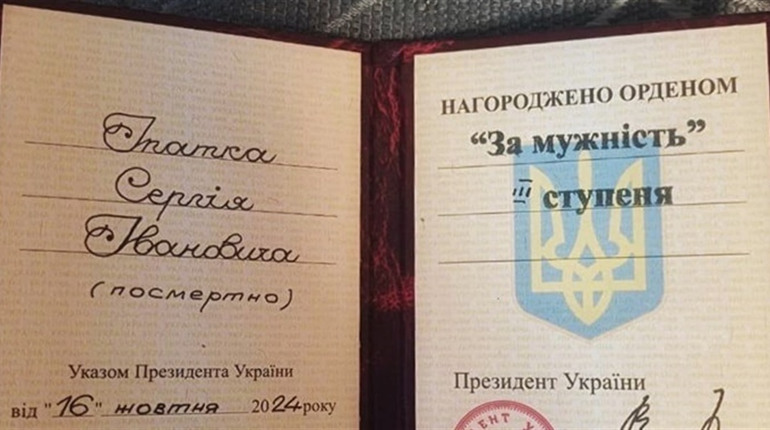 Іпатка
Сергія
Івановича
(посмертно)
Указом Президента України
від "16" жовтня 2024 року
НАГОРОДЖЕНО ОРДЕНОМ
“За мужність”
III ступеня
Президент України